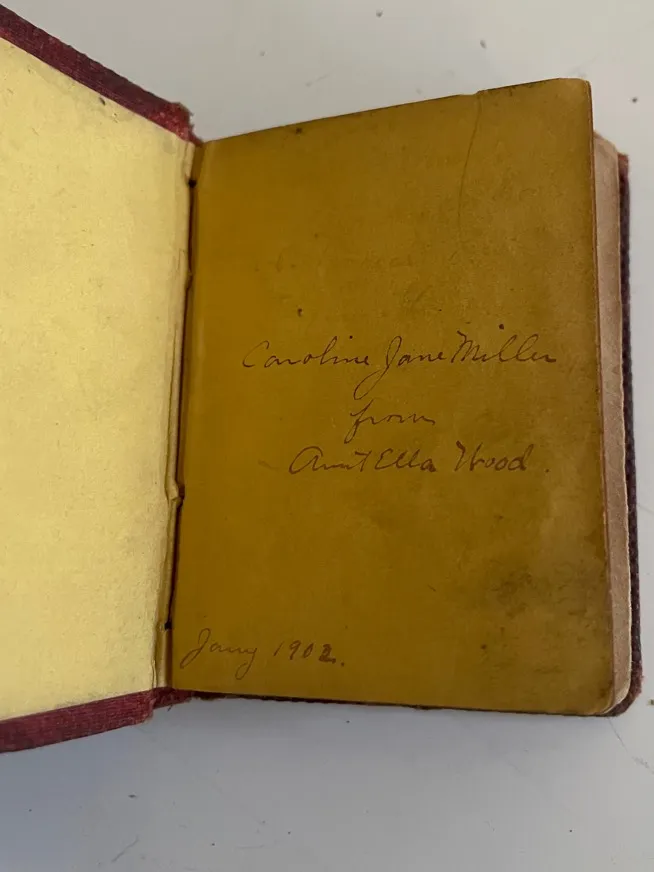 Caroline Jane Miller
from
Aunt Ella Wood.
Jany 1902.